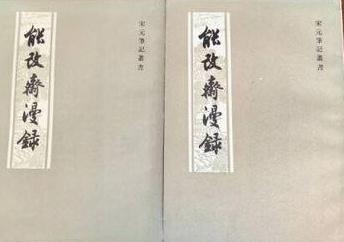 能改齋漫録
宋元筆記叢書
能改齋漫録
宋元筆記叢書